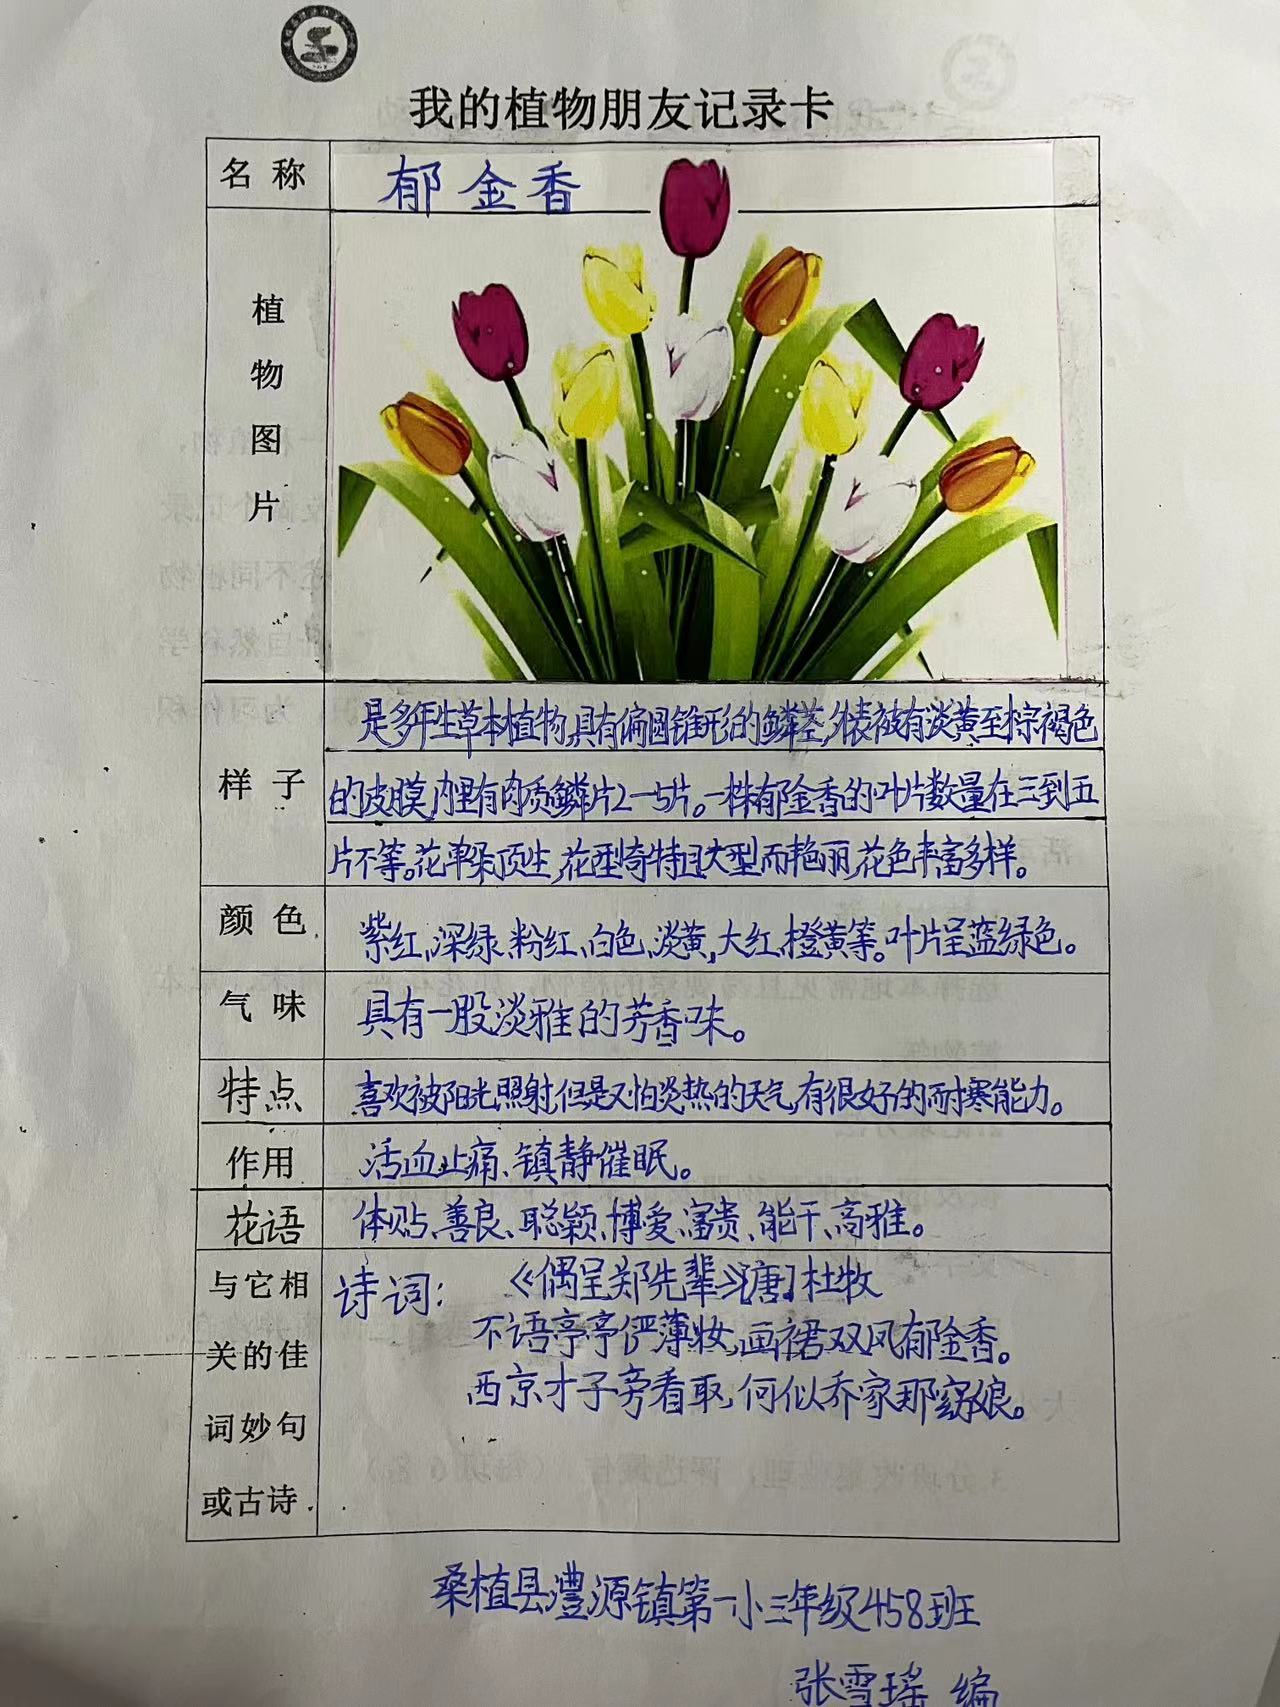 我的植物朋友记录卡
名称 郁金香
植物图片
样子
是多年生草本植物,具有偏圆锥形的鳞茎,外表被有淡黄至棕褐色
的皮膜,内里有肉质鳞片2一5片。一株郁金香的叶片数量在三到五
片不等。花单朵顶生,花型奇特且大型而艳丽,花色丰富多样。
颜色 紫红、深绿、粉红、白色、淡黄,大红、橙黄等。叶片呈蓝绿色。
气味 具有一股淡雅的芳香味。
特点 喜欢被阳光照射,但是又怕炎热的天气,有很好的耐寒能力。
作用 活血止痛、镇静催眠。
花语 体贴、善良、聪颖、博爱、富贵、能干、高雅。
与它相
关的佳
词妙句
或古诗.
诗词: 《偶呈郑先辈》[唐]杜牧
不语亭亭俨薄妆,画裙双凤郁金香。
西京才子旁看取,何似乔家那窈娘。
桑植县澧源镇第一小三年级458班
张雪瑶 编